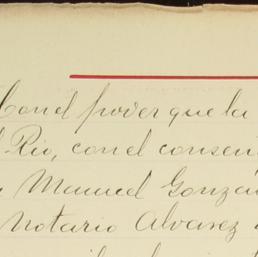 Con el poder que la
Rio, con el consen
Manuel Gonzá
Notario Alvarez